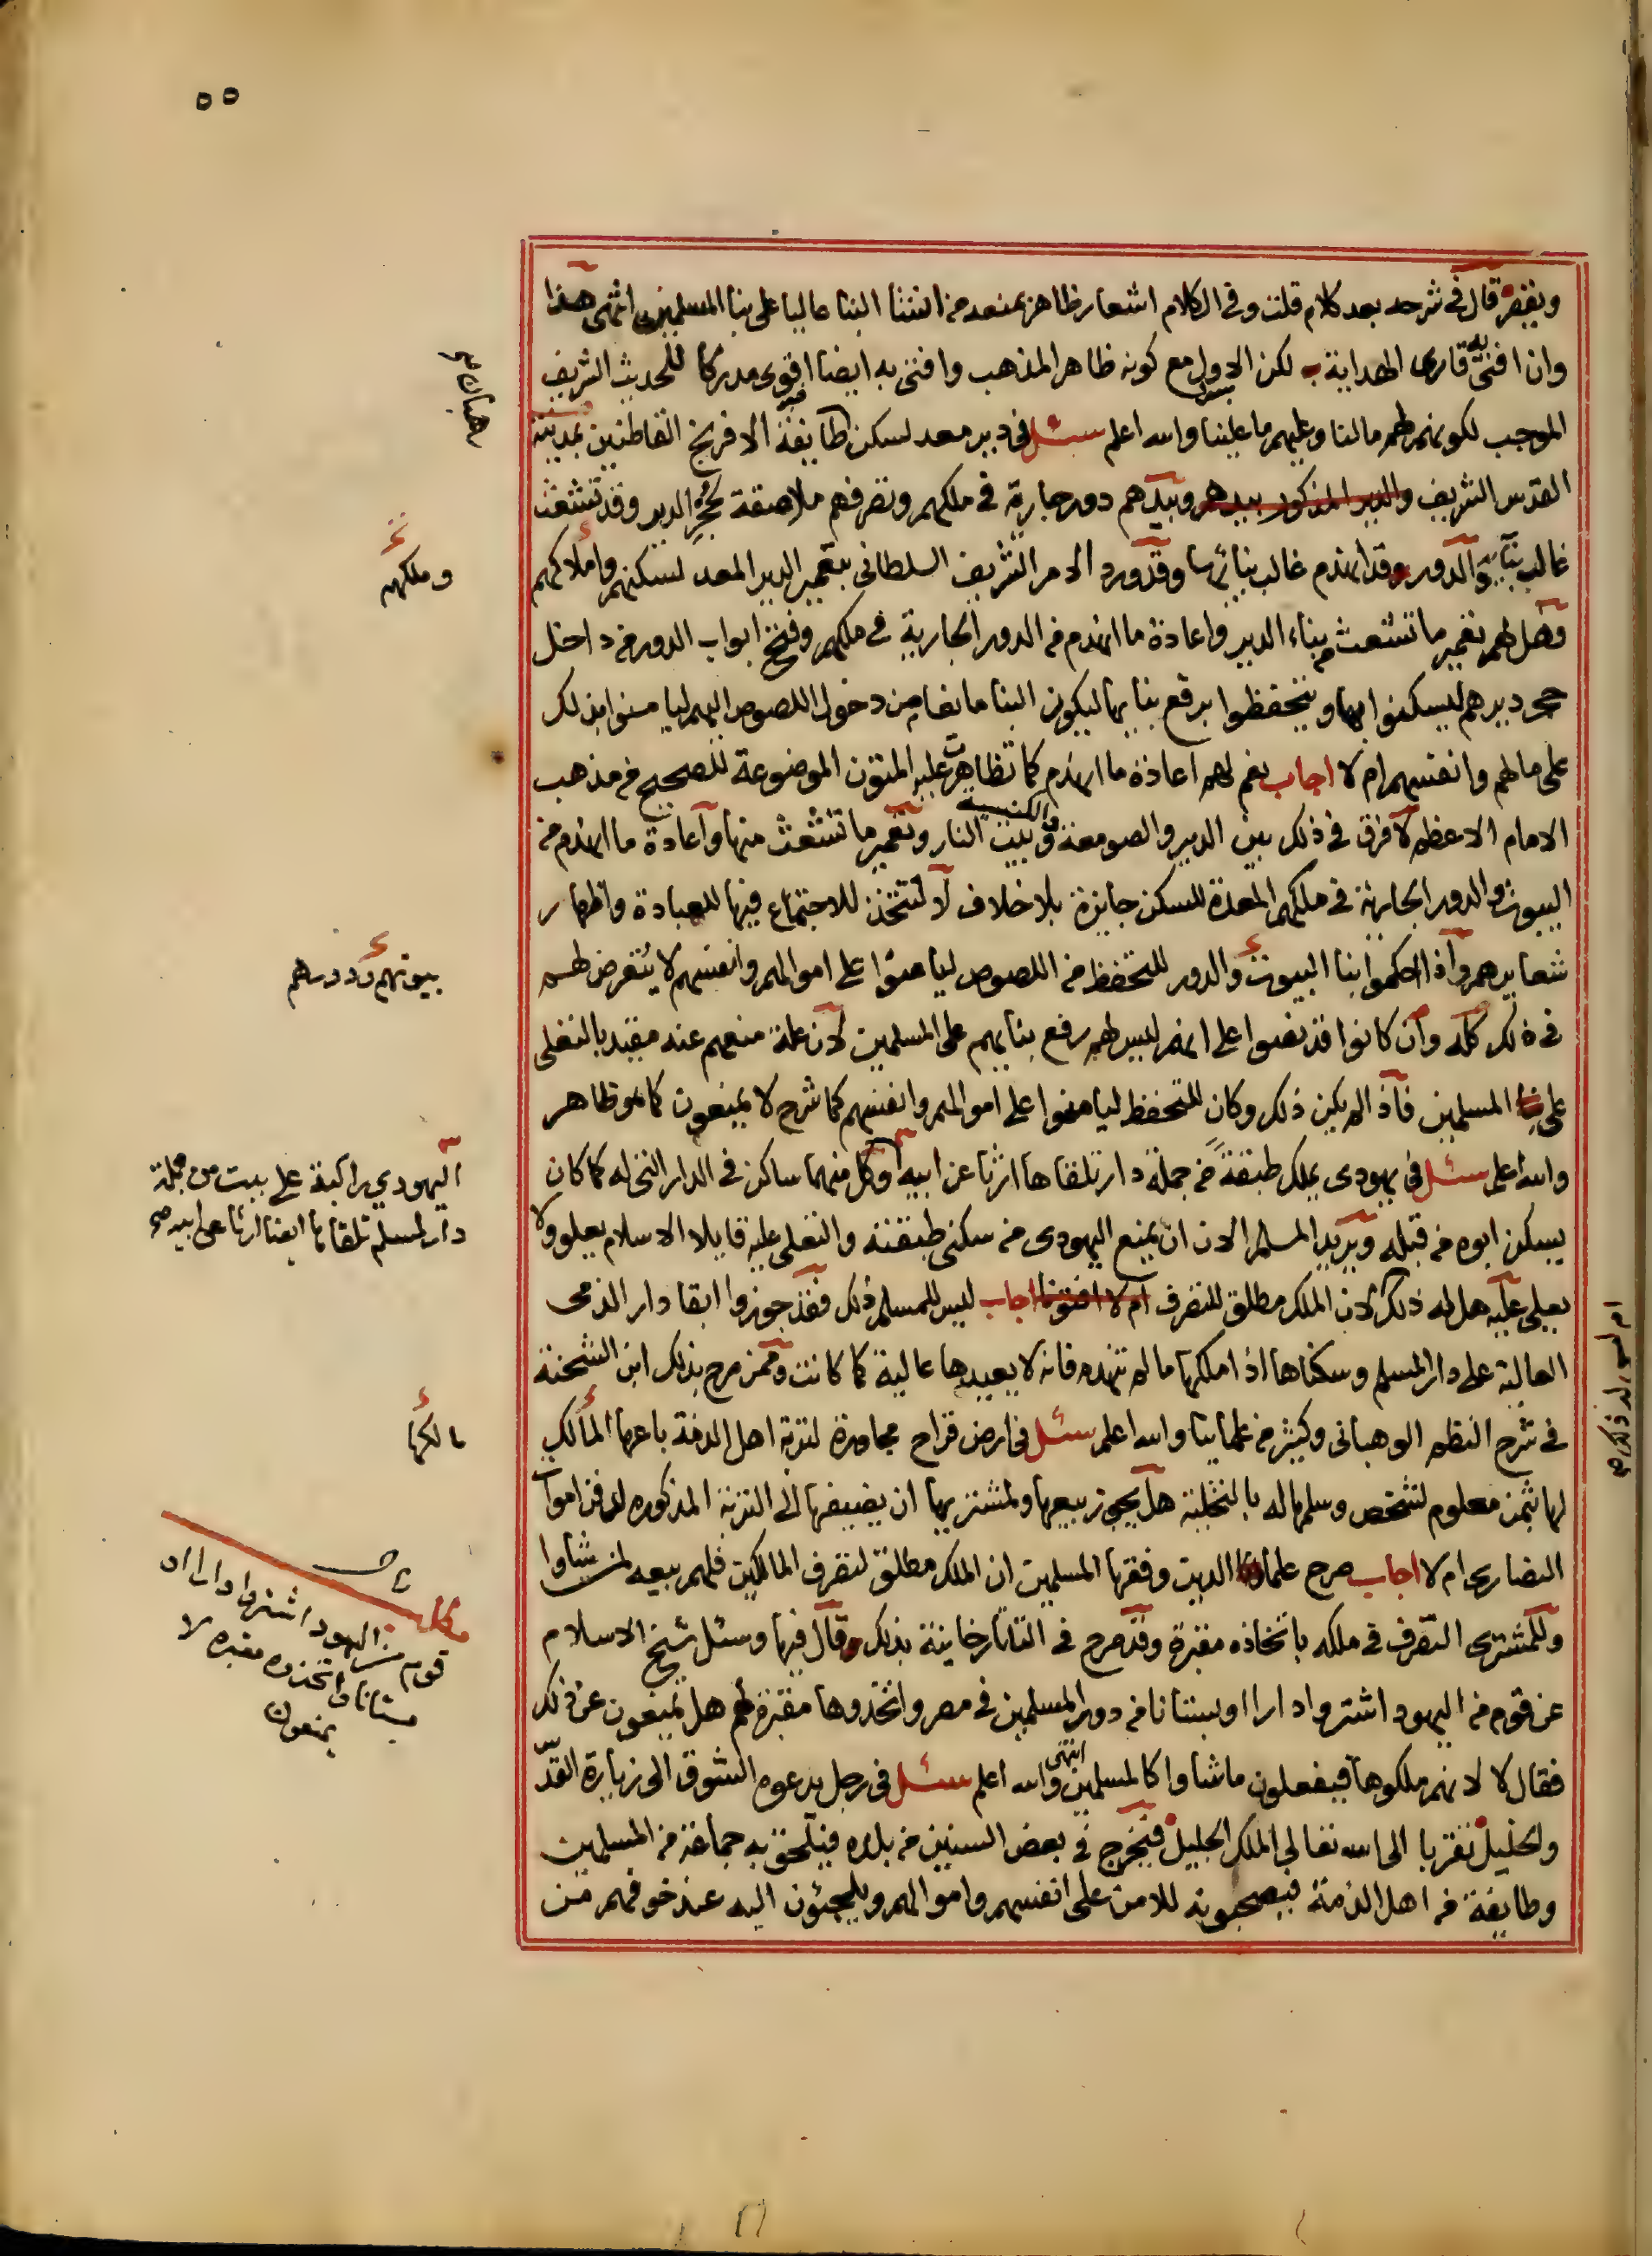 ٥٥
ويفتى قال في شرحه بعد كلام قلت وفي الكلام اشعار ظاهر بمنعه من انشا البنا عاليا على بنا المسلمين انتهى هذا
وان افتى به قارى الهداية لكن الاول مع كونه ظاهر المذهب وافتى به ايضا اقوى مدركا للحديث الشريف
الموجب لكونهم لهم مالنا وعليهم ما علينا والله اعلم سئل في دير معد لسكن طايفة الافرنج القاطنين بمدينة
القدس الشريف والدير المذكور بيدهر وبيدهم دور جارية في ملكهم وتصرفهم ملاصقة لحجر الدير وقد تشعث
غالب بنايه والدور وقد انهدم غالب بنائها وقد ورد الامر الشريف السلطانى بتعمير الدير المعد لسكنهم واملاكهم
وهل لهم تعمير ما تشعث من بناء الدير واعادة ما انهدم من الدور الجارية في ملكهم وفتح ابواب الدور من داخل
حجر ديرهم ليسكنوا بها ويتحفظوا برفع بنايها ليكون البنا مانعا من دخول اللصوص اليهم ليامنوا بذلك
على مالهم وانفسهم ام لا اجاب نعم لهم اعادة ما انهدم كما تظاهرت عليه المتون الموضوعة للصحيح من مذهب
الامام الاعظم لا فرق في ذلك بين الدير والصومعة والكنيسة وبيت النار وتعمير ما تشعث منها واعادة ما انهدم من
البيوت والدور الجارية في ملكهم المعدة للسكن جايزة بلا خلاف لا لتتخذ للاجتماع فيها للعبادة واظهار
شعايرهم واذا احكموا بنا البيوت والدور للتحفظ من اللصوص ليامنوا على اموالهم وانفسهم لا يتعرض لهم
في ذلك كله وان كانوا قد نصوا على انهم ليس لهم رفع بنايهم على المسلمين لان علة منعهم عنه مقيد بالتعلى
على بنا المسلمين فاذا لم يكن ذلك وكان للتحفظ ليامنوا على اموالهم وانفسهم كما شرح لا يمنعون كما هو ظاهر
والله اعلم سئل في يهودى يملك طبقة من جملة دار تلقاها ارثا عن ابيه وكل منهما ساكن في الدار التى له كما كان
يسكن ابوه من قبله ويريد المسلم الان ان يمنع اليهودى من سكنى طبقته والتعلى عليه قايلا الاسلام يعلو ولا
يعلى عليه هل له ذلك لان الملك مطلق للتصرف ام لا افتونا اجاب ليس للمسلم ذلك فقد جوزوا ابقا دار الذمى
العالية على دار المسلم وسكناها اذا ملكها ما لم تنهدم فانه لا يعيدها عالية كما كانت وممن صرح بذلك ابن الشحنة
في شرح النظم الوهبانى وكثير من علمائنا والله اعلم سئل في ارض قراح مجاورة لتربة اهل الذمة باعها المالك
لها بثمن معلوم لشخص وسلمها له بالتخلية هل يجوز بيعها ولمشتريها ان يضيفها الى التربة المذكوره لدفن اموات
النصارى ام لا اجاب صرح علماء الدين وفقها المسلمين ان الملك مطلق لتصرف المالكين فلهم بيعه لمن شاوا
وللمشترى التصرف في ملكه باتخاذه مقبرة وقد صرح في التاتارخانية بذلك وقال فيها وسئل شيخ الاسلام
عن قوم من اليهود اشتروا دارا او بستانا من دور المسلمين في مصر واتخذوها مقبرة لهم هل يمنعون عن ذلك
فقال لا لانهم ملكوها فيفعلون ما شاوا كالمسلمين انتهى والله اعلم سئل في رجل يدعوه الشوق الى زيارة القدس
والخليل تقربا الى الله تعالى الملك الجليل فيخرج في بعض السنين من بلده فيلتحق به جماعة من المسلمين
وطايفة من اهل الذمة فيصحبونه للامن على انفسهم واموالهم ويلجئون اليه عند خوفهم من
رهبان صح
وملكهم
بيوتهم ودورهم
اليهودي راكبة على بيت من جملة
دار لمسلم تلقاها ايضا ارثا عن ابيه صح
ام ليس له ذلك صح
مالكها
قوم من اليهود اشتروا دارا او
بستانا واتخذوه مقبرة لا
يمنعون